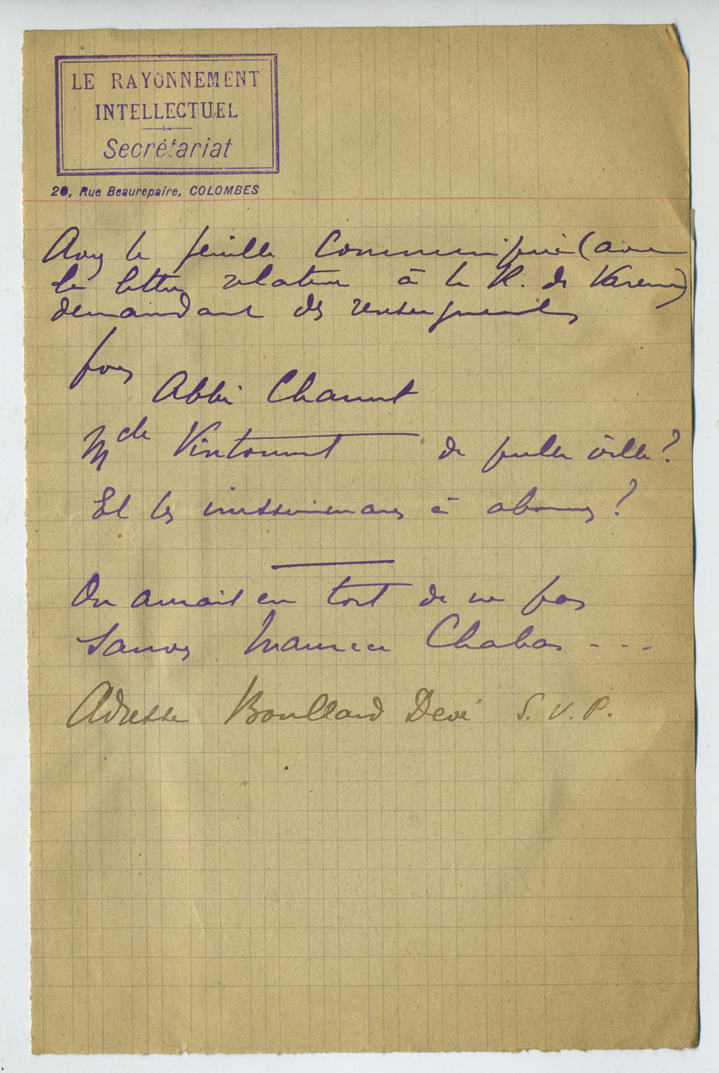 LE RAYONNEMENT
INTELLECTUEL
Secrétariat
20, Rue Beaurepaire, COLOMBES
la feuille (avec
la lettre relative à la R. de Varenne)
demandant des renseignements
pour
Abbé
Mde de quelle ville?
Et les missionnaires à abonner?
On aurait eu tort de ne pas
sauver Maurice Chabas ...
Adresse Boullard Devé S.V.P.